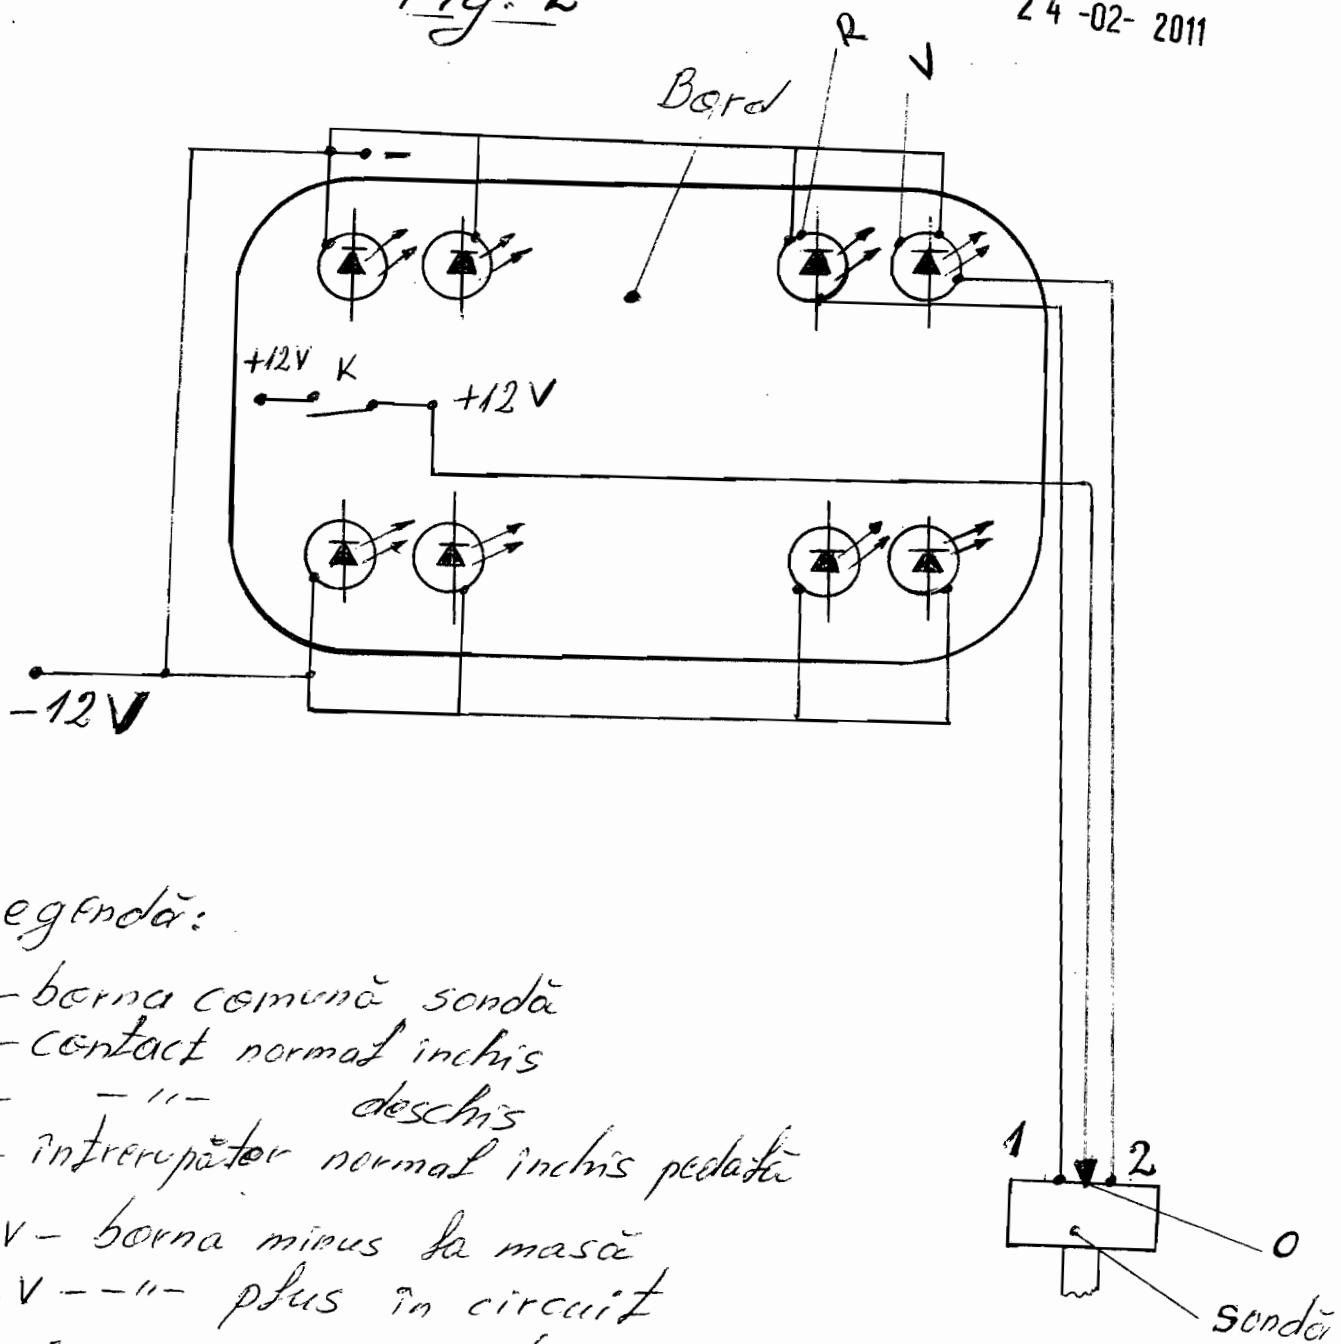 Fig. 2
24 -02- 2011
R
V
Bord
-
+12V
K
+12V
-12V
egendă:
- borna comună sondă
- contact normal închis
- -"- deschis
- întrerupător normal închis pedală
V - borna minus la masă
V - -"- plus în circuit
1
2
0
sondă